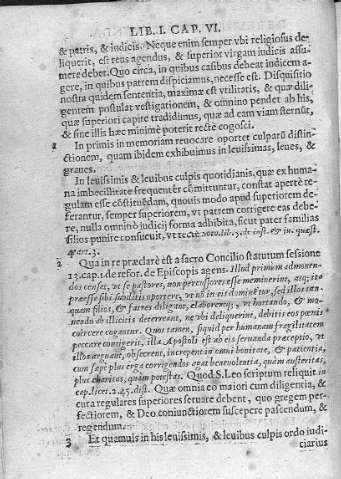 LIB. I. CAP. VI.
& patris, & iudicis. Neque enim semper vbi religiosus de-
liquerit, est reus agendus, & superior virgam iudicis assu-
mere debet. Quo circa, in quibus casibus debeat iudicem a-
gere, in quibus patrem dispiciamus, necesse est. Disquisitio
nostra quidem sententia, maximæ est vtilitatis, & quæ dili-
gentem postulat vestigationem, & omnino pendet ab his,
quæ superiori capite tradidimus, quæ ad eam viam sternũt,
& sine illis hæc minimè poterit rectè cognosci.
1 In primis in memoriam reuocare oportet culparũ distin-
ctionem, quam ibidem exhibuimus in leuissimas, leues, &
graues.
In leuissimis & leuibus culpis quotidianis, quæ ex huma-
na imbecillitate frequentèr cõmittuntur, constat apertè re-
gulam esse cõstituẽdam, quouis modo apud superiorem de-
ferantur, semper superiorem, vt patrem corrigere eas debe-
re, nulla omninò iudicij forma adhibita, sicut pater familias
filios punire consueuit, vt rectè Soto. lib. 5. de iust. & iu. quæst.
4. art. 3.
2 Qua in re præclarè est a sacro Concilio statutum sessione
13. cap. 1. de refor. de Episcopis agens. Illud primum admonen-
dos censet, vt se pastores, non percussores esse meminerint, atq; ita
præesse sibi subditis oportere, vt nõ in eis dominẽtur, sed illos tan-
quam filios, & fratres diligant, elaborentq; vt hortando, & mo-
nendo ab illicitis deterreant, ne vbi deliquerint, debitis eos pœnis
coercere cogantur. Quos tamen, siquid per humanam fragilitatem
peccare contigerit, illa Apostoli est ab eis seruanda præceptio, vt
illos arguant, obsecrent, increpent in omni bonitate, & patientia,
cum sæpè plus erga corrigendos agat beneuolentia, quàm austeritas,
plus charitas, quàm potestas. Quod S. Leo scriptum reliquit in
cap. licet. 2. 45. dist. Quæ omnia eo maiori cum diligentia, &
cura regulares superiores seruare debent, quo gregem per-
fectiorem, & Deo coniunctiorem suscepere pascendum, &
regendum.
3 Et quamuis in his leuissimis, & leuibus culpis ordo iudi-
ciarius